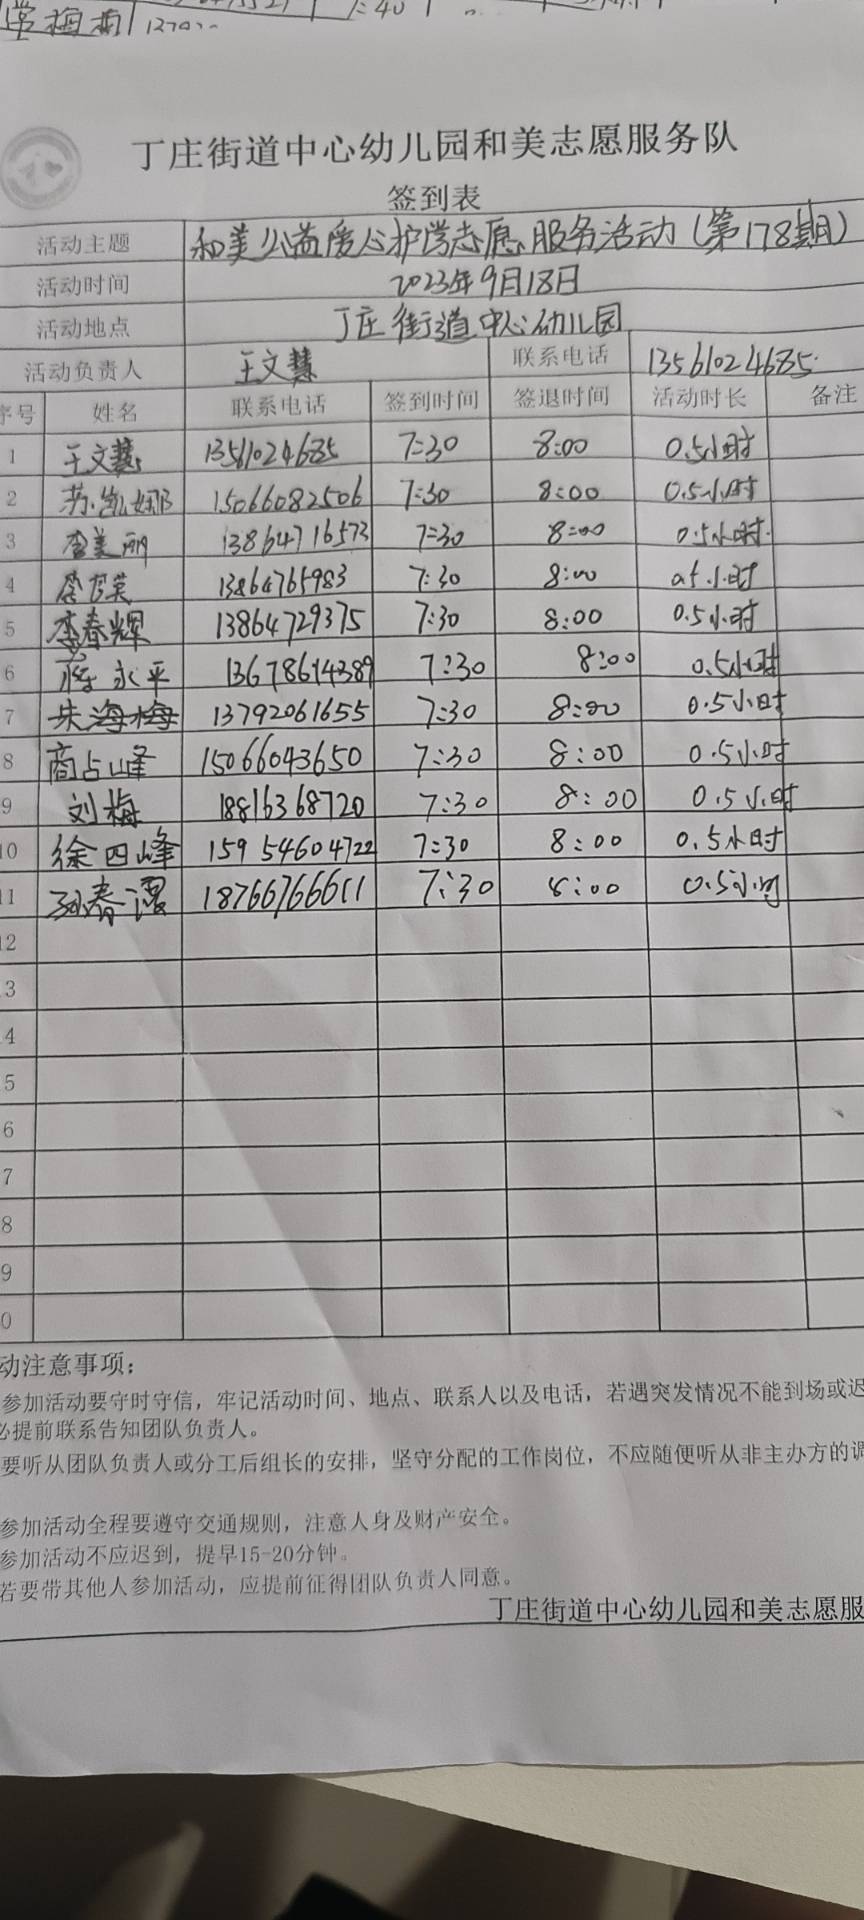 丁庄街道中心幼儿园和美志愿服务队
签到表
活动主题 和美公益爱心护学志愿服务活动(第178期)
活动时间 2023年9月18日
活动地点 丁庄街道中心幼儿园
活动负责人 王文慧 联系电话 13561024685
序号 姓名 联系电话 签到时间 签退时间 活动时长 备注
1 王文慧 13561024685 7:30 8:00 0.5小时
2 苏凯娜 15066082506 7:30 8:00 0.5小时
3 李美丽 13864716573 7:30 8:00 0.5小时
4 13864765983 7:30 8:00 0.5小时
5 李春辉 13864729375 7:30 8:00 0.5小时
6 蒋永平 13678614389 7:30 8:00 0.5小时
7 朱海梅 13792061655 7:30 8:00 0.5小时
8 商占峰 15066043650 7:30 8:00 0.5小时
9 刘梅 18816368720 7:30 8:00 0.5小时
10 徐四峰 15954604722 7:30 8:00 0.5小时
11 孙春霞 18766766611 7:30 8:00 0.5小时
12
3
4
5
6
7
8
9
0
动注意事项:
参加活动要守时守信,牢记活动时间、地点、联系人以及电话,若遇突发情况不能到场或迟
必提前联系告知团队负责人。
要听从团队负责人或分工后组长的安排,坚守分配的工作岗位,不应随便听从非主办方的调
参加活动全程要遵守交通规则,注意人身及财产安全。
参加活动不应迟到,提早15-20分钟。
若要带其他人参加活动,应提前征得团队负责人同意。
丁庄街道中心幼儿园和美志愿服